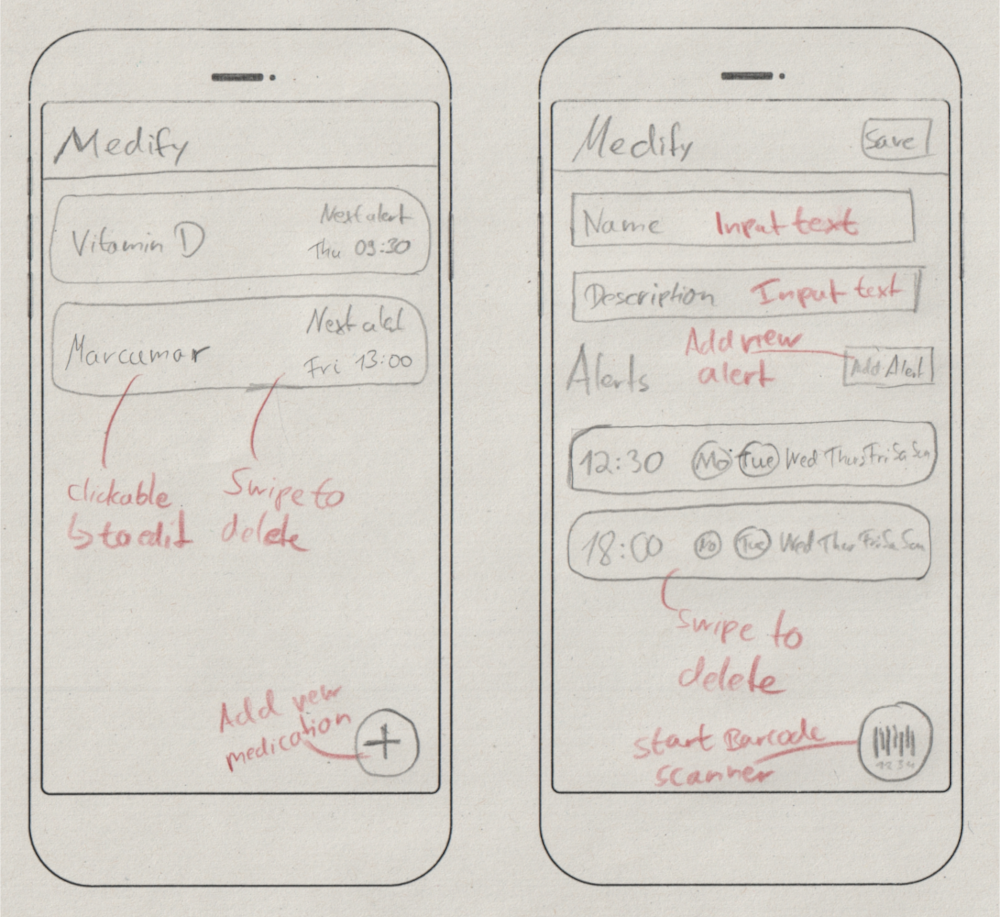 Medify
Vitamin D
Next alert
Thu 09:30
Marcumar
Next alert
Fri 13:00
clickable
↳ to edit
Swipe to
delete
Add new
medication
+
Medify
Save
Name Input text
Description Input text
Alerts
Add new
alert
Add Alert
12:30 Mo Tue Wed Thur Fri Sa Sun
18:00 Mo Tue Wed Thur Fri Sa Sun
Swipe to
delete
start Barcode
scanner
1234